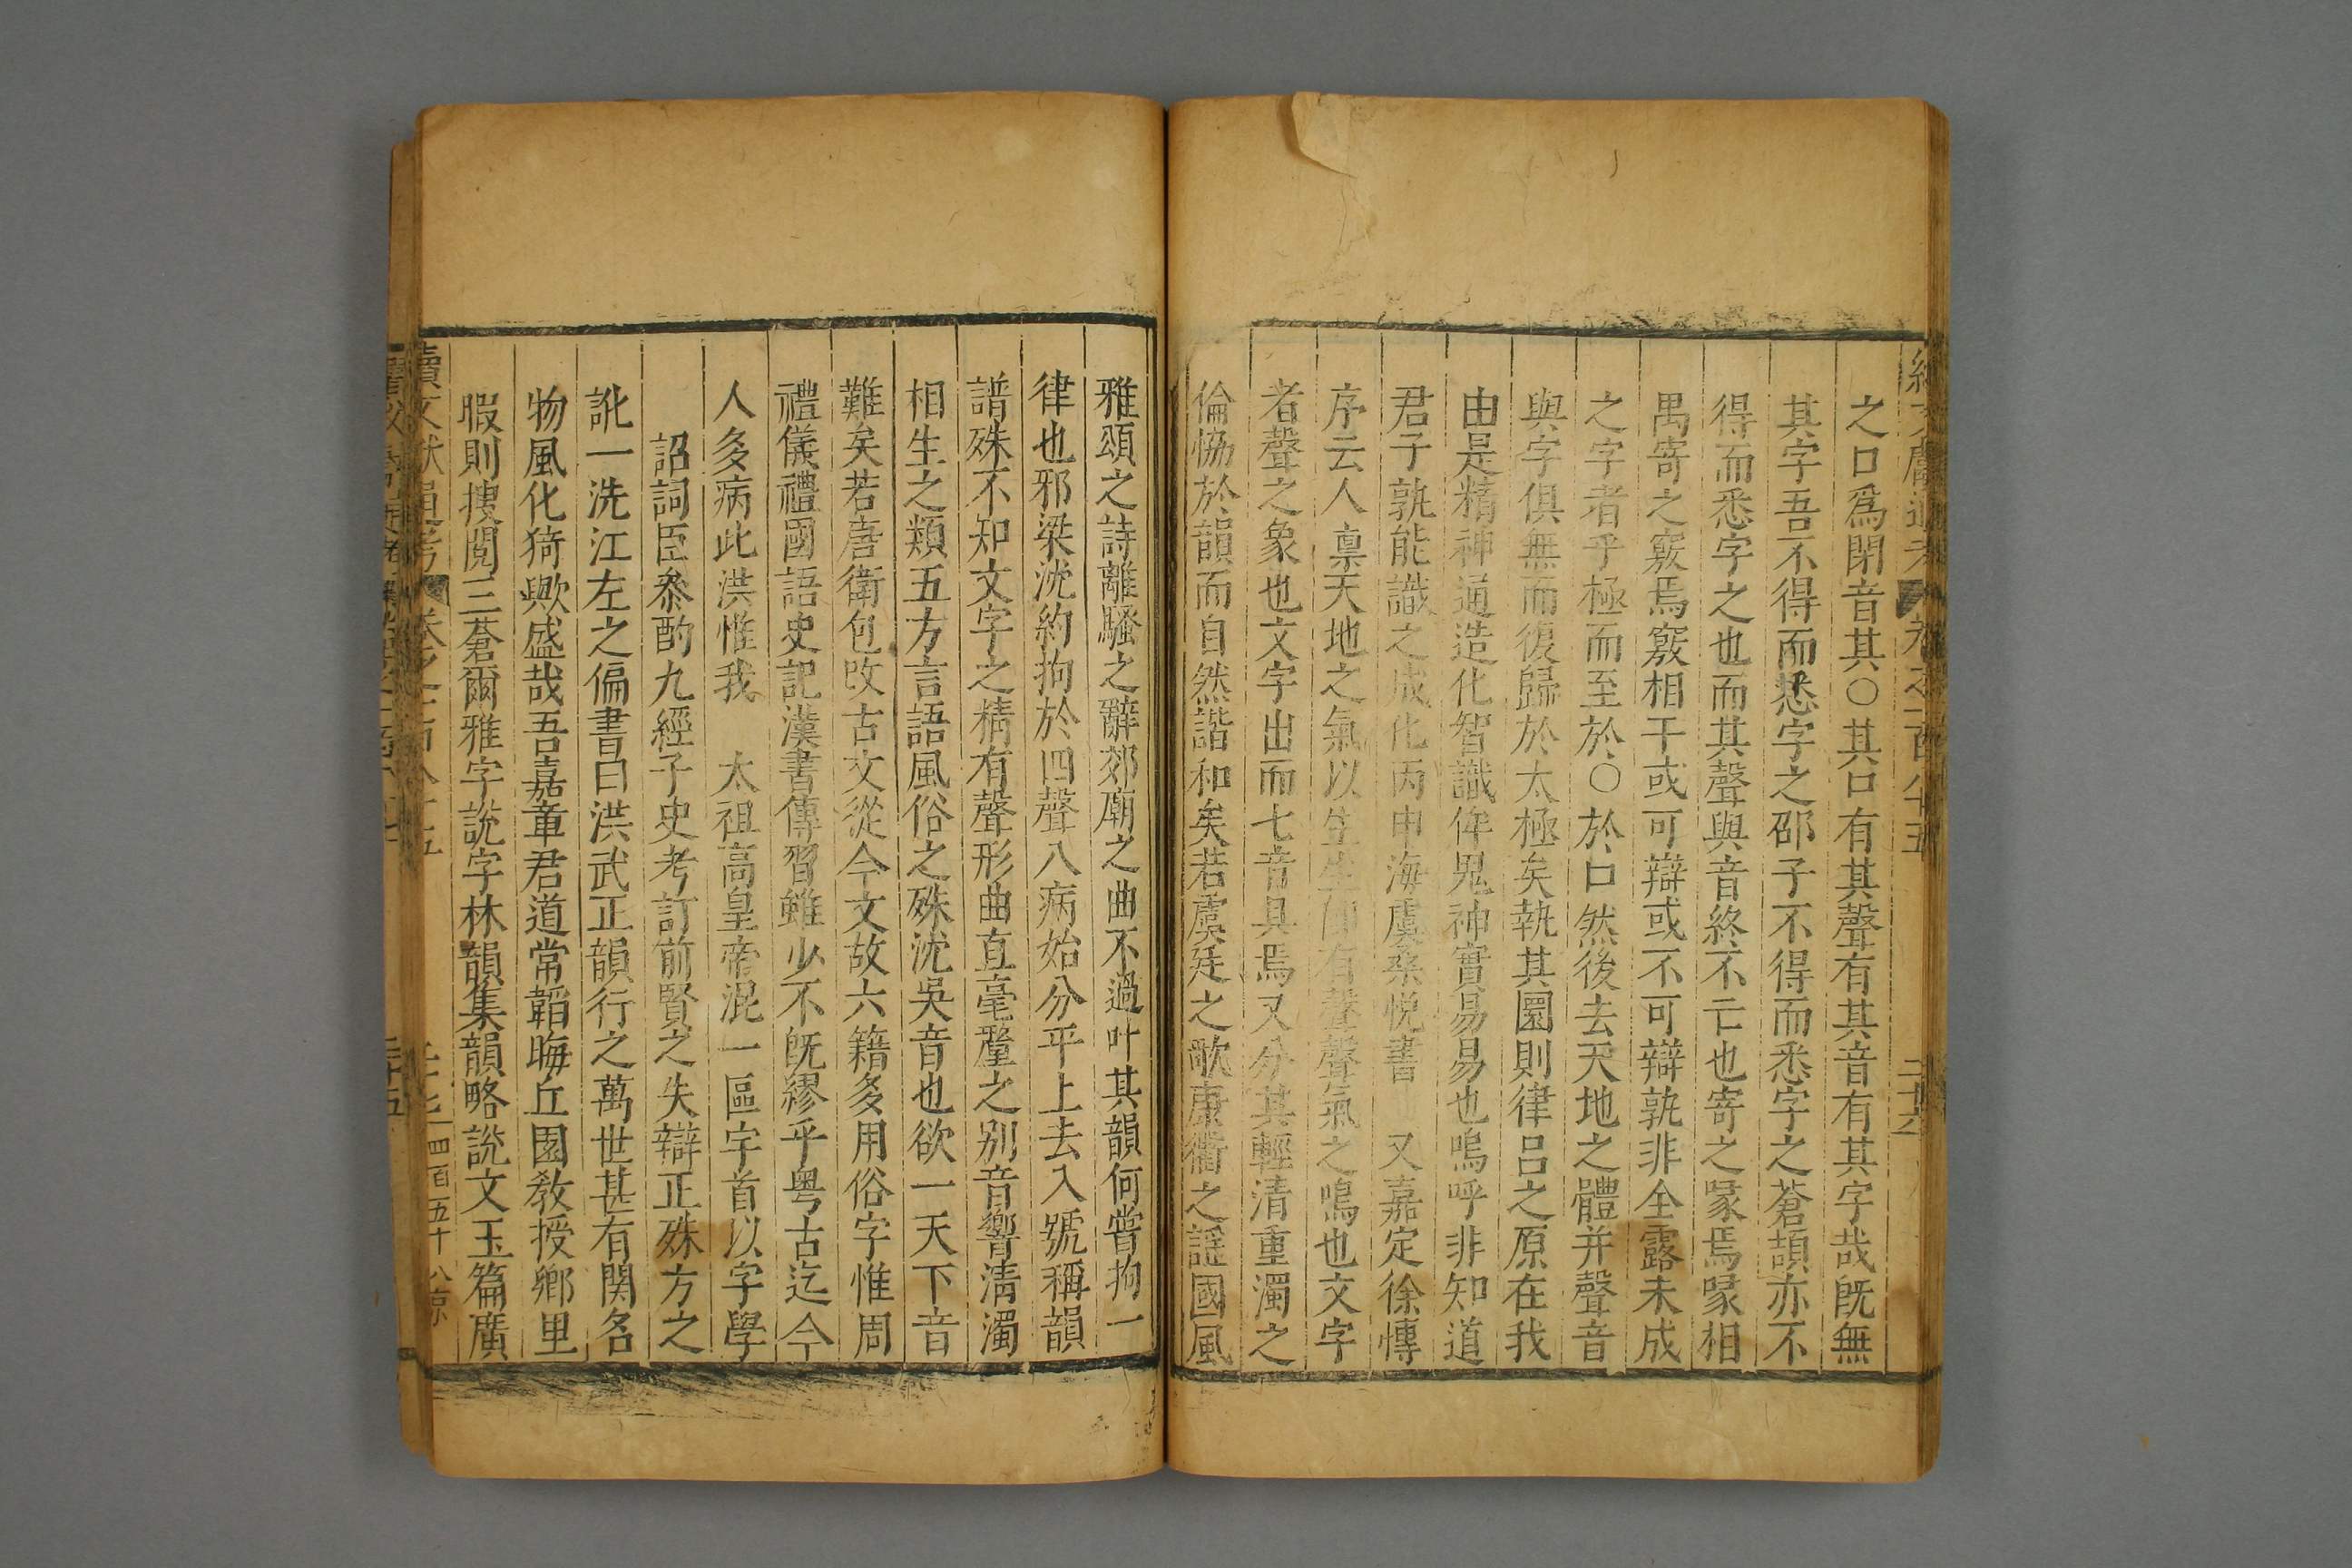 之口爲閉音其〇其口有其聲有其音有其字哉旣無
其字吾不得而悉字之邵子不得而悉字之蒼頡亦不
得而悉字之也而其聲與音終不亡也寄之㒸焉㒸相
禺寄之竅焉竅相干或可辯或不可辯孰非全露未成
之字者乎極而至於〇於口然後去天地之體并聲音
與字俱無而復歸於太極矣執其圜則律呂之原在我
由是精神通造化智識侔鬼神實易易也嗚呼非知道
君子孰能識之成化丙申海虞桑悦書 又嘉定徐傳
序云人稟天地之氣以生生卽有聲聲氣之鳴也文字
者聲之象也文字出而七音具焉又分其輕清重濁之
倫恊於韻而自然諧和矣若虞廷之歌康衢之謡國風
雅頌之詩離騷之辭郊廟之曲不過叶其韻何嘗拘一
律也邪梁沈約拘於四聲八病始分平上去入號稱韻
譜殊不知文字之精有聲形曲直毫釐之別音響清濁
相生之類五方言語風俗之殊沈吳音也欲一天下音
難矣若唐衛包改古文從今文故六籍多用俗字惟周
禮儀禮國語史記漢書傳習雖少不旣繆乎粤古迄今
人多病此洪惟我 太祖高皇帝混一區字首以字學
詔詞臣叅酌九經子史考訂前賢之失辯正殊方之
訛一洗江左之偏書曰洪武正韻行之萬世甚有関名
物風化猗歟盛哉吾嘉章君道常韜晦丘園敎授鄉里
暇則捜閱三蒼爾雅字說字林韻集韻略說文玉篇廣
續文獻通考 卷之一百八十五
四百五十八 京